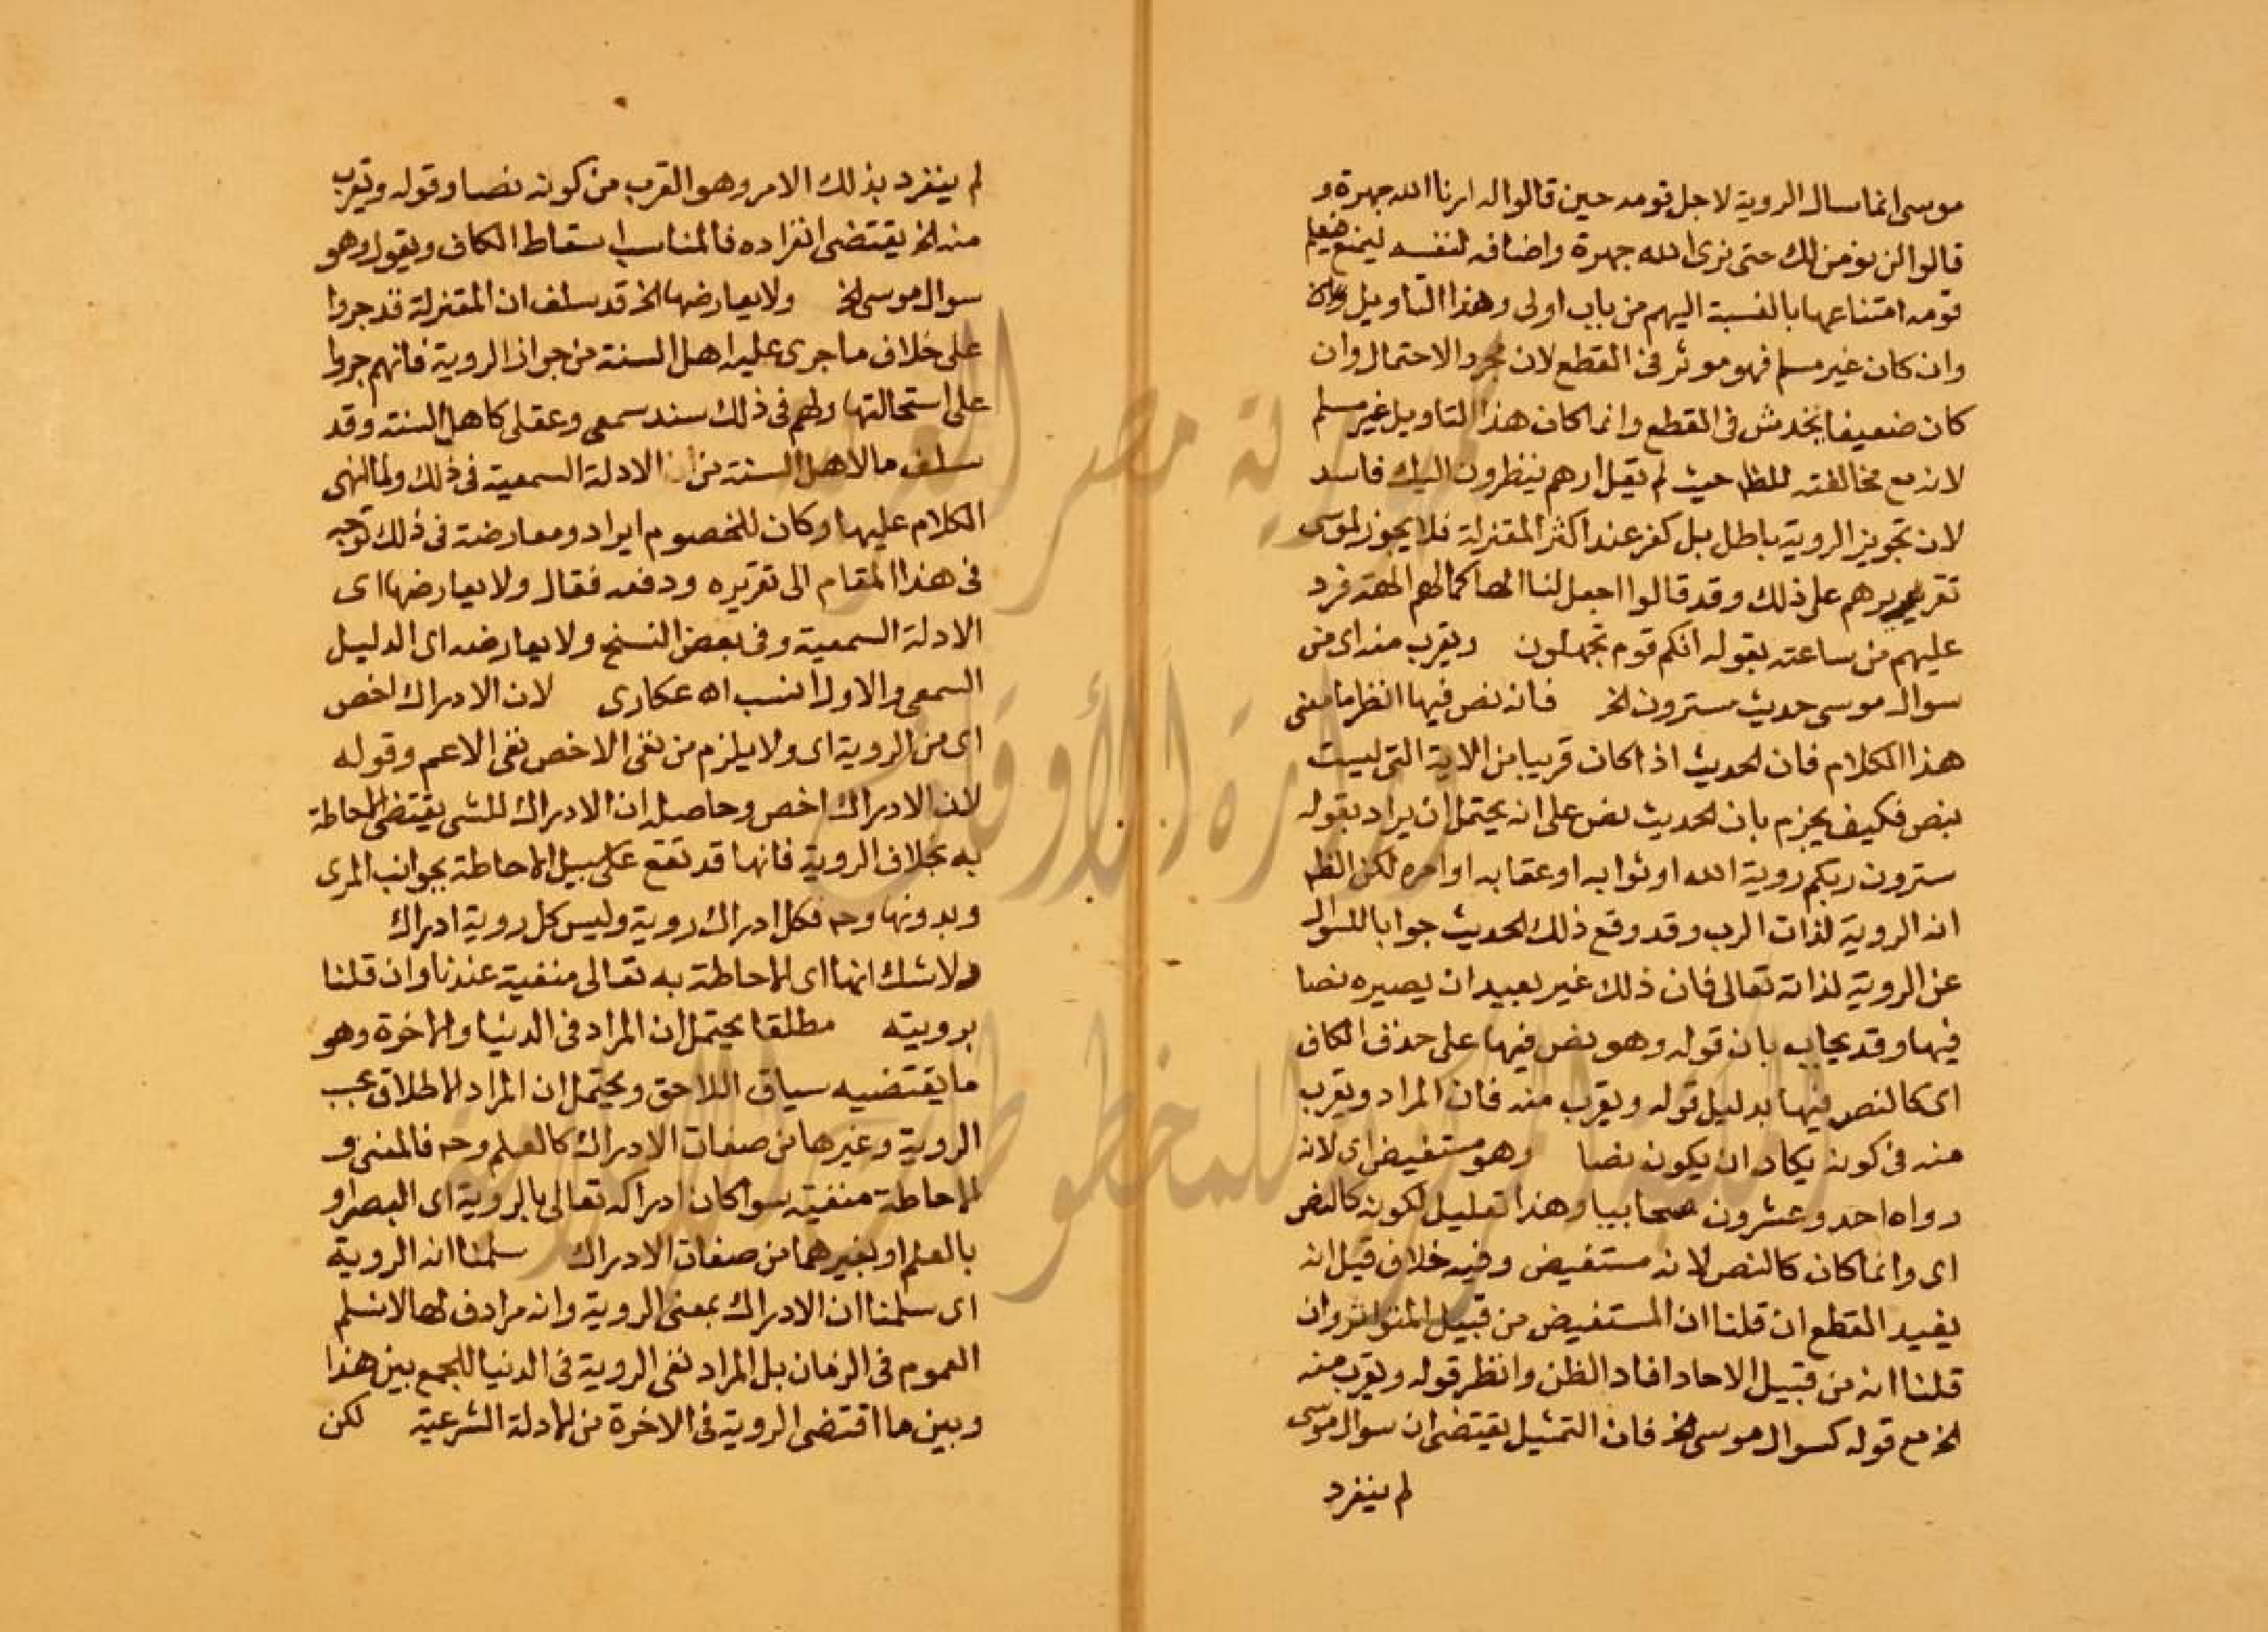 موسى انما سال الروية لاجل قومه حين قالوا له ارنا الله جهرة و
قالوا لن نومن لك حتى نرى الله جهرة واضافه لنفسه ليمنع فيعلم
قومه امتناعها بالنسبة اليهم من باب اولى وهذا التاويل
وان كان غير مسلم فهو موثر في القطع لان مجرد الاحتمال وان
كان ضعيفا يخدش في القطع وانما كان هذا التاويل غير مسلم
لانه مع مخالفته للظ حيث لم يقل ارهم ينظرون اليك فاسد
لان تجويز الروية باطل بل كفر عند اكثر المعتزلة فلا يجوز لموسى
تقريرهم على ذلك وقد قالوا اجعل لنا الها كما لهم الهة فرد
عليهم من ساعته بقوله انكم قوم تجهلون ويقرب منه اى من
سوال موسى حديث سترون الخ فانه نص فيها انظر ما معنى
هذا الكلام فان الحديث اذا كان قريبا من الاية التى ليست
بنص فكيف يجزم بان الحديث نص على انه يحتمل ان يراد بقوله
سترون ربكم روية الله او ثوابه او عقابه او امره لكن الظ
ان الروية لذات الرب وقد وقع ذلك الحديث جوابا للسوال
عن الروية لذاته تعالى فان ذلك غير بعيد ان يصيره نصا
فيها وقد يجاب بان قوله وهو نص فيها على حذف الكاف
اى كالنص فيها بدليل قوله ويقرب منه فان المراد ويقرب
منه في كونه يكاد ان يكون نصا وهو مستفيض اى لانه
رواه احد وعشرون صحابيا وهذا تعليل لكونه كالنص
اى وانما كان كالنص لانه مستفيض وفيه خلاف قيل انه
يفيد القطع ان قلنا ان المستفيض من قبيل المتواتر وان
قلنا انه من قبيل الاحاد افاد الظن وانظر قوله ويقرب منه
الخ مع قوله كسوال موسى الخ فان التمثيل يقتضى ان سوال موسى
لم ينفرد
لم ينفرد بذلك الامر وهو القرب من كونه نصا وقوله ويقرب
منه الخ يقتضى انفراده فالمناسب اسقاط الكاف ويقول وهو
سوال موسى الخ ولا يعارضها الخ قد سلف ان المعتزلة قد جروا
على خلاف ما جرى عليه اهل السنة من جواز الروية فانهم جروا
على استحالتها ولهم في ذلك سند سمعى وعقلى كاهل السنة وقد
سلف ما لاهل السنة من الادلة السمعية في ذلك ولما انهى
الكلام عليها وكان للخصوم ايراد ومعارضة في ذلك توجه
في هذا المقام الى تقريره ودفعه فقال ولا يعارضها اى
الادلة السمعية وفي بعض النسخ ولا يعارضه اى الدليل
السمعى والاول انسب اه عكارى لان الادراك اخص
اى من الروية اى ولا يلزم من نفى الاخص نفى الاعم وقوله
لان الادراك اخص وحاصله ان الادراك للشى يقتضى الاحاطة
به بخلاف الروية فانها قد تقع على سبيل الاحاطة بجوانب المرى
وبدونها وح فكل ادراك روية وليس كل روية ادراك
ولا شك انها اى الاحاطة به تعالى منفية عندنا وان قلنا
برويته مطلقا يحتمل ان المراد في الدنيا والاخرة وهو
ما يقتضيه سياق اللاحق ويحتمل ان المراد الاطلاق بحسب
الروية وغيرها من صفات الادراك كالعلم وح فالمعنى و
الاحاطة منفية سوا كان ادراكه تعالى بالروية اى البصر او
بالعلم او بغيرهما من صفات الادراك سلمنا انه الروية
اى سلمنا ان الادراك بمعنى الروية وانه مرادف لها لا نسلم
العموم في الزمان بل المراد نفى الروية في الدنيا للجمع بين هذا
وبين ما اقتضى الروية في الاخرة من الادلة الشرعية لكن